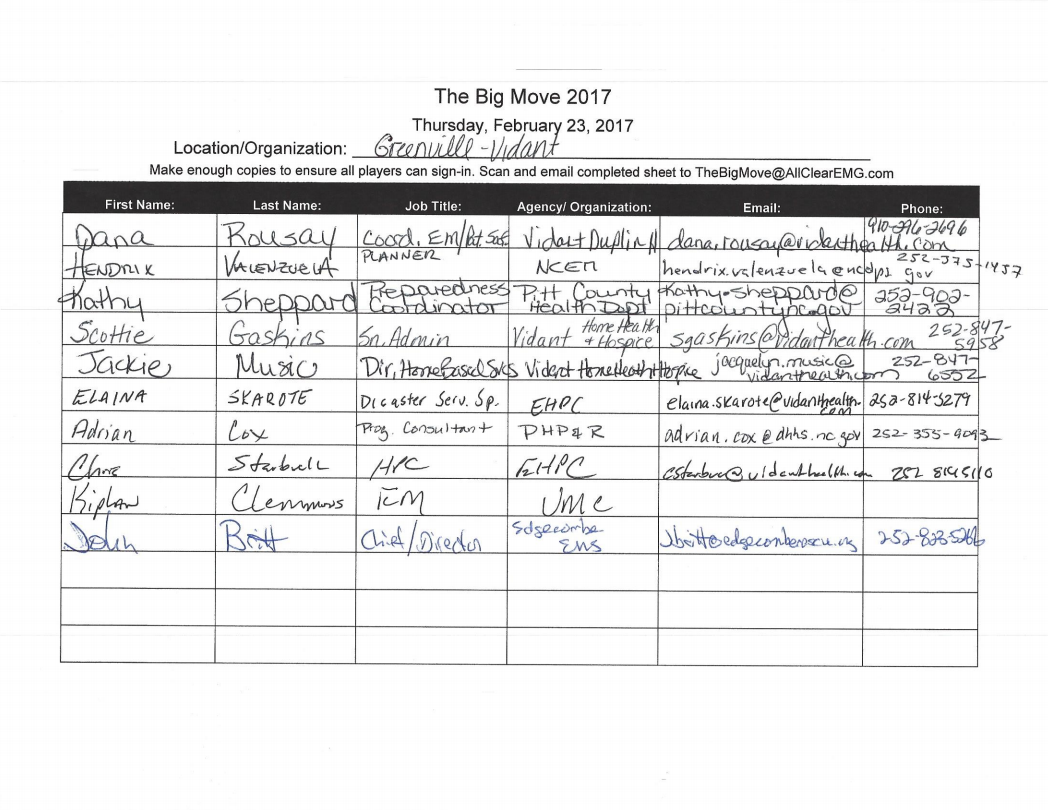 The Big Move 2017
Thursday, February 23, 2017
Location/Organization: Greenville-Vidant
Make enough copies to ensure all players can sign-in. Scan and email completed sheet to TheBigMove@AllClearEMG.com
First Name: Last Name: Job Title: Agency/ Organization: Email: Phone:
Dana Rousay Coord. EM/Pat Saf Vidant Duplin dana.rousay@vidanthealth.com 910-296-2696
HENDRIX VALENZUELA PLANNER NCEM hendrix.valenzuela@ncdps.gov 252-375-1457
Kathy Sheppard Preparedness Coordinator Pitt County Health Dept Kathy.sheppard@pittcountync.gov 252-902-2422
Scottie Gaskins Sn. Admin Vidant Home Health & Hospice sgaskins@vidanthealth.com 252-847-5958
Jackie Music Dir, Home Based Svks Vidant Home Health Hospice jacquelyn.music@vidanthealth.com 252-847-6552
ELAINA SKAROTE Disaster Serv. Sp. EHPC elaina.skarote@vidanthealth.com 252-814-5279
Adrian Cox Prog. Consultant PHP&R adrian.cox@dhhs.nc.gov 252-355-9093
Chris Starbuck HPC EHPC cstarbuc@vidanthealth.com 252 814 5110
Kiplan Clemmons ICM UMC
John Britt Chief/Director Edgecombe EMS 252-823-5266